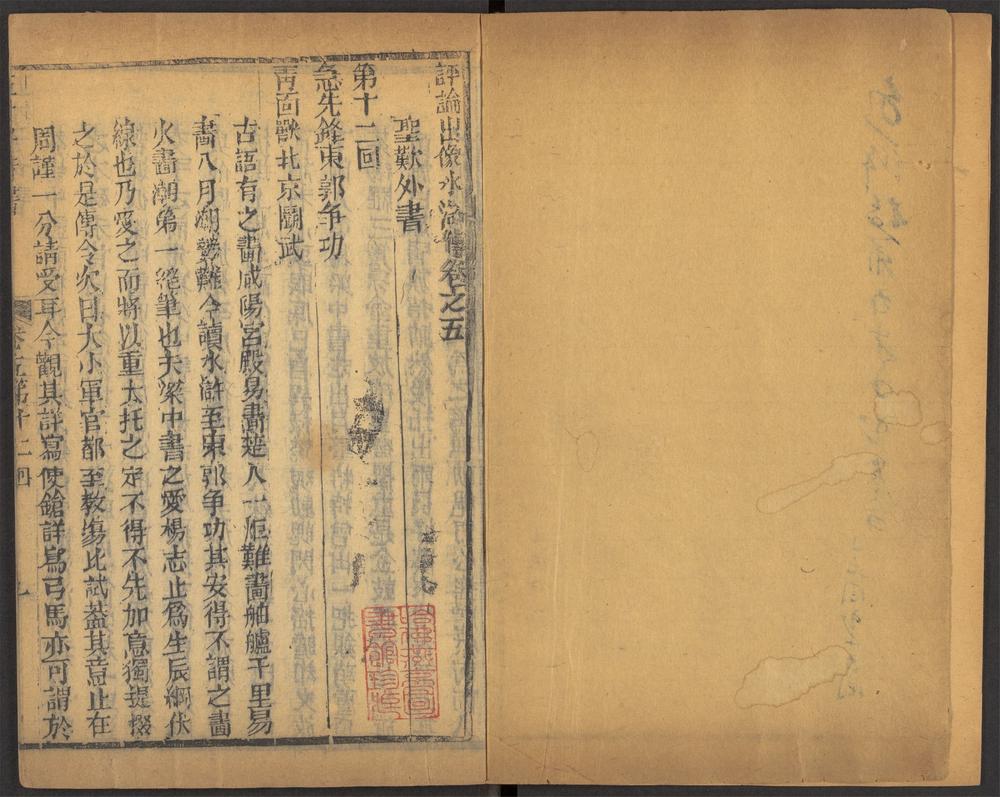 評論出像水滸傳卷之五
聖歎外書
第十二回
急先鋒東郭争功
靑面獸北京鬪武
古語有之畵咸陽宮殿易畵楚人一炬難畵舳艫千里易
畵八月潮勢難今讀水滸至東郭争功其安得不謂之畵
火畵潮第一絶筆也夫梁中書之愛楊志止爲生辰綱伏
線也乃愛之而將以重大托之定不得不先加意獨提掇
之於是傳令次日大小軍官都至教塲比試葢其意止在
周謹一分請受耳今觀其詳寫使鎗詳寫弓馬亦可謂於
卷五第十二回